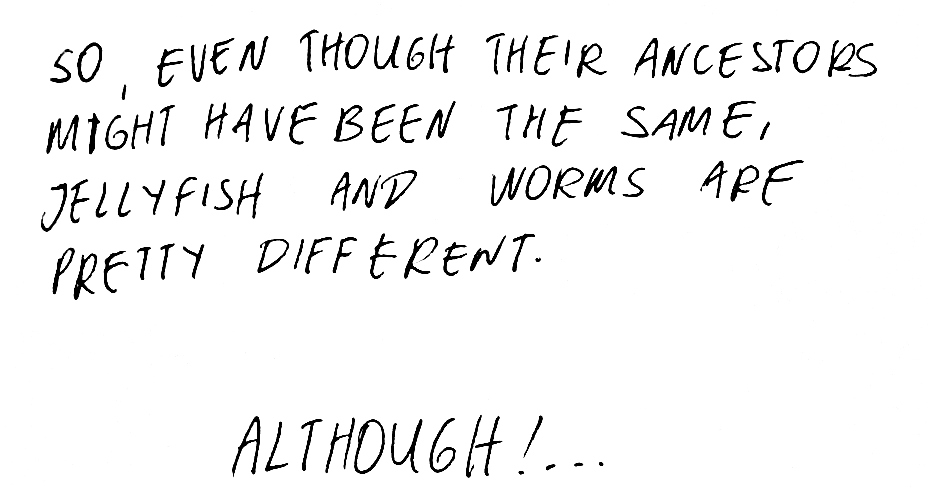 SO, EVEN THOUGH THEIR ANCESTORS
MIGHT HAVE BEEN THE SAME,
JELLYFISH AND WORMS ARE
PRETTY DIFFERENT.
ALTHOUGH!...